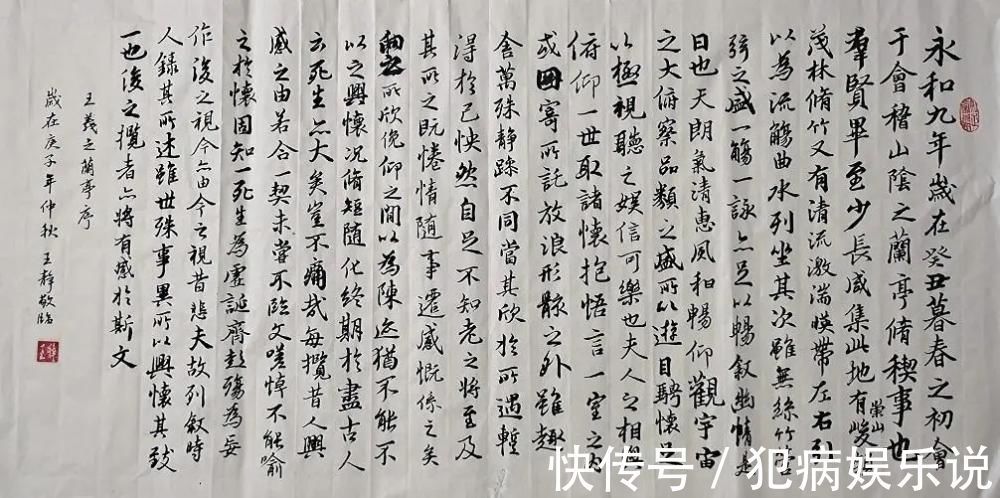 永和九年歲在癸丑暮春之初會
于會稽山陰之蘭亭脩稧事也
羣賢畢至少長咸集此地有崇山峻領
茂林脩竹又有清流激湍暎帶左右引
以為流觴曲水列坐其次雖無絲竹管
弦之盛一觴一詠亦足以暢叙幽情是
日也天朗氣清惠風和暢仰觀宇宙
之大俯察品類之盛所以遊目騁懷足
以極視聽之娱信可樂也夫人之相與
俯仰一世取諸懷抱悟言一室之内
或因寄所託放浪形骸之外雖趣
舍萬殊静躁不同當其欣於所遇蹔
得於己怏然自足不知老之將至及
其所之既惓情隨事遷感慨係之矣
向之所欣俛仰之間以為陳迹猶不能不
以之興懷况脩短隨化終期於盡古人
云死生亦大矣豈不痛哉每攬昔人興
感之由若合一契未嘗不臨文嗟悼不能喻
之於懷固知一死生為虛誕齊彭殤為妄
作後之視今亦由今之視昔悲夫故列叙時
人録其所述雖世殊事異所以興懷其致
一也後之攬者亦將有感於斯文
王羲之蘭亭序
歲在庚子年仲秋王靜敬臨
快传号/犯病娱乐说